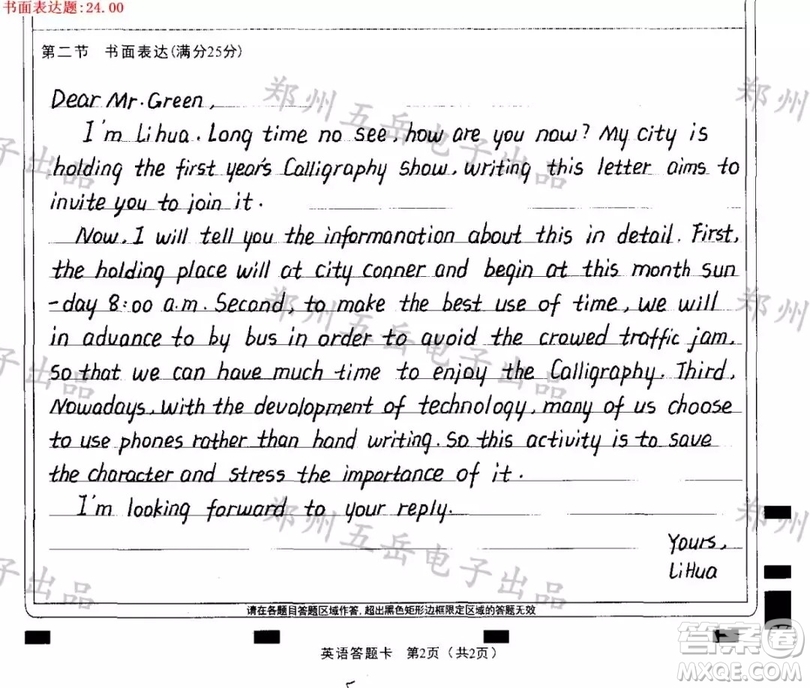 书面表达题:24.00
第二节 书面表达(满分25分)
Dear Mr. Green,
I'm Lihua. Long time no see, how are you now? My city is
holding the first year's Calligraphy Show, writing this letter aims to
invite you to join it.
Now, I will tell you the informanation about this in detail. First,
the holding place will at city conner and begin at this month sun
-day 8:00 a.m. Second, to make the best use of time, we will
in advance to by bus in order to avoid the crowed traffic jam,
so that we can have much time to enjoy the Calligraphy. Third,
Nowadays, with the devolopment of technology, many of us choose
to use phones rather than hand writing. So this activity is to save
the character and stress the importance of it.
I'm looking forward to your reply.
Yours,
LiHua
请在各题目答题区域作答,超出黑色矩形边框限定区域的答题无效
英语答题卡 第2页(共2页)
郑州五岳电子出品
答案圈
MXQE.COM